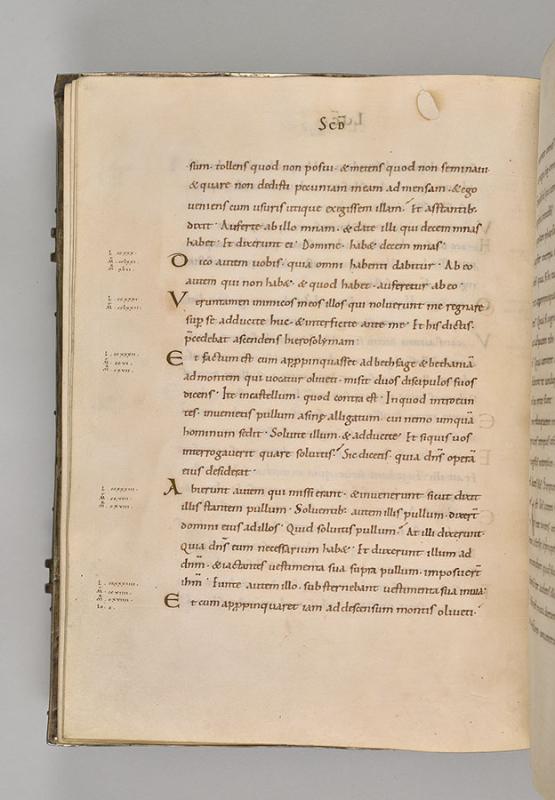 SCD
sum. tollens quod non posui. & metens quod non seminaui.
& quare non dedisti pecuniam meam ad mensam. & ego
ueniens cum usuris utique exegissem illam. Et asstantib;
dixit. Auferte ab illo mnam. & date illi qui decem mnas
habet. Et dixerunt ei. Domine. hab& decem mnas.
Dico autem uobis. quia omni habenti dabitur. Ab eo
autem qui non hab&. & quod habet. auferetur ab eo.
Veruntamen inimicos meos illos qui noluerunt me regnare
sup se. adducite huc. & interficite ante me. Et his dictis.
p̄cedebat ascendens hierosolymam.
Et factum est cum appropinquasset ad bethfage & bethaniā
ad montem qui uocatur oliueti. misit duos discipulos suos
dicens. Ite in castellum. quod contra est. In quod introeun
tes. inuenietis pullum asinę alligatum. cui nemo umquā
hominum sedit. Soluite illum. & adducite. Et si quis uos
interrogauerit quare soluitis. Sic dicetis. quia dn̄s operā
eius desiderat.
Abierunt autem qui missi erant. & inuenerunt sicut dixit
illis stantem pullum. Soluentib; autem illis pullum. dixert̄
domini eius ad illos. Quid soluitis pullum. At illi dixerunt.
Quia dn̄s eum necessarium hab&. Et duxerunt illum ad
dn̄m. & iactantes uestimenta sua supra pullum. imposuert̄
ihm̄. Eunte autem illo. substernebant uestimenta sua in uia.
Et cum appropinquaret iam ad descensum montis oliueti.